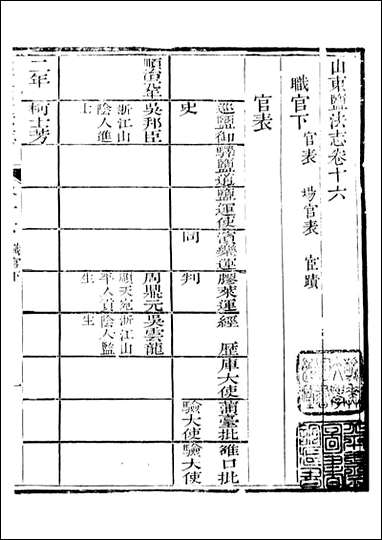 山東鹽法志卷十六
職官下 官表 場官表 宦蹟
官表
巡鹽御史
驛鹽道
鹽運使
濱樂運同
膠萊運判
經歷
庫大使
蒲臺批驗大使
雒口批驗大使
順治元年
吳邦臣 浙江山陰人進士
周鼎元 順天宛平人貢生
吳雲龍 浙江山陰人監生
二年
柯士芳